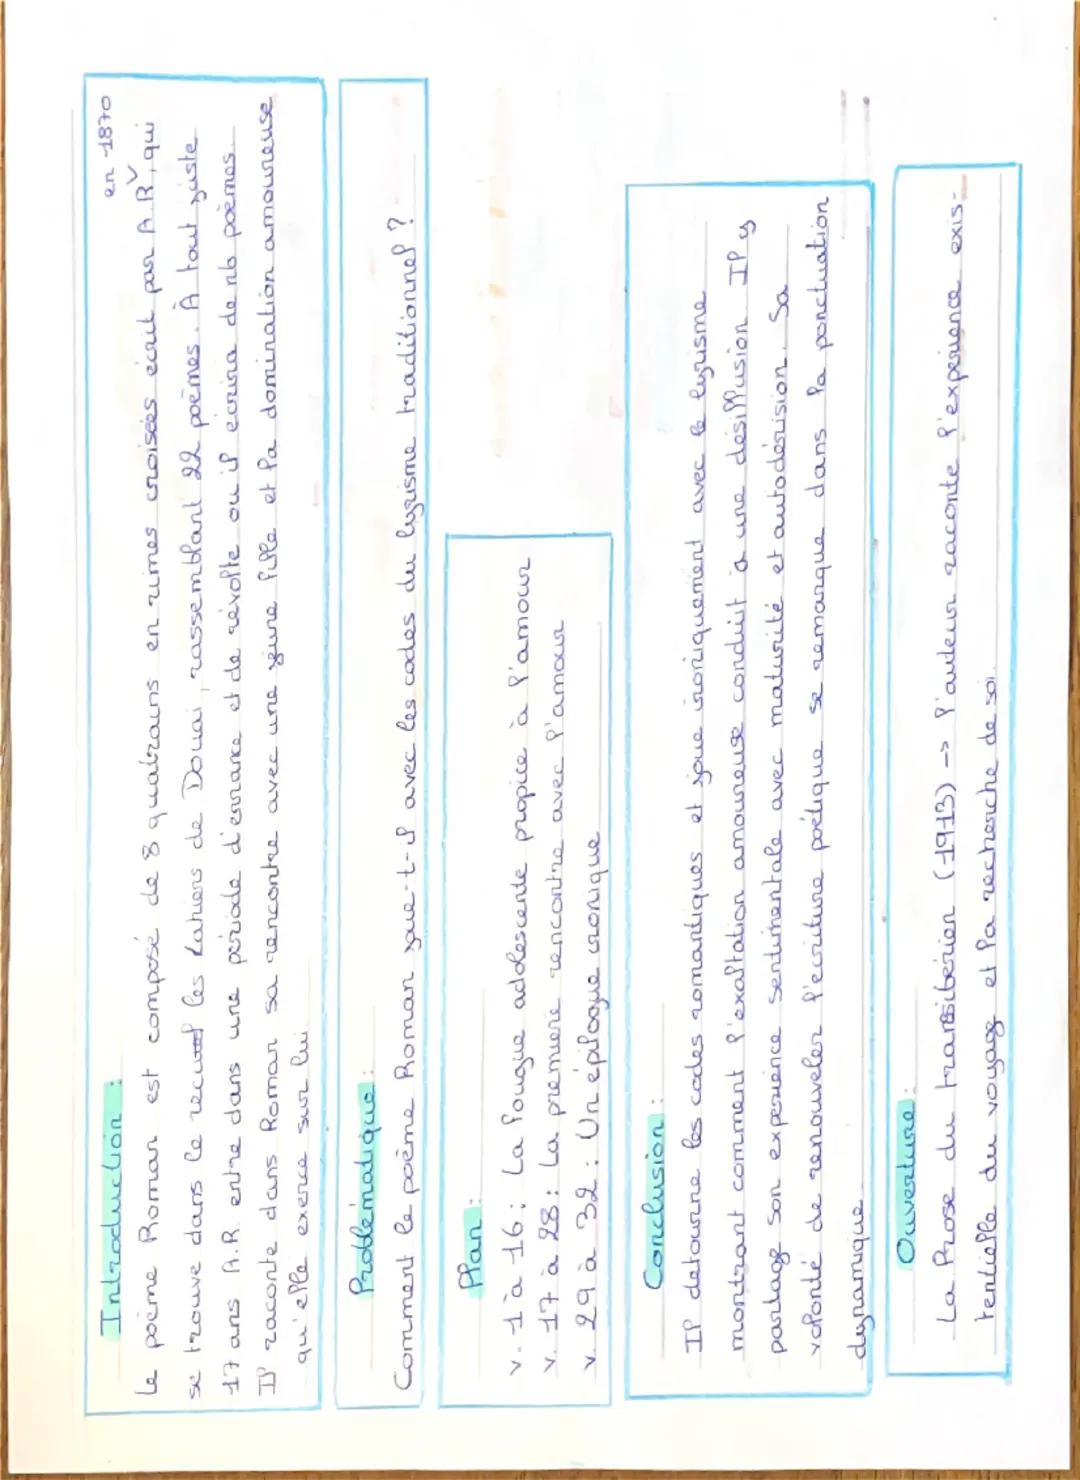 Introduction :
en 1870
Le poème Roman est composé de 8 quatrains en rimes croisées écrit par A.R, qui
se trouve dans le recueil les Cahiers de Douai, rassemblant 22 poèmes. À tout juste
17 ans A.R. entre dans une période d'errance et de révolte ou il écrira de nb poèmes.
Il raconte dans Roman sa rencontre avec une jeune fille et la domination amoureuse
qu'elle exerce sur lui
Problématique :
Comment le poème Roman joue-t-il avec les codes du lyrisme traditionnel ?
Plan :
v. 1 à 16 : La fougue adolescente propice à l'amour
v. 17 à 28 : La première rencontre avec l'amour
v. 29 à 32 : Un épilogue ironique
Conclusion :
Il detourne les codes romantiques et joue ironiquement avec le lyrisme
montrant comment l'exaltation amoureuse conduit à une désillusion. Il y
partage son expérience sentimentale avec maturité et autodérision. Sa
volonté de renouveler l'écriture poétique se remarque dans la ponctuation
dynamique
Ouverture :
La Prose du transsibérien (1913) -> l'auteur raconte l'expérience exis-
tentielle du voyage et la recherche de soi.